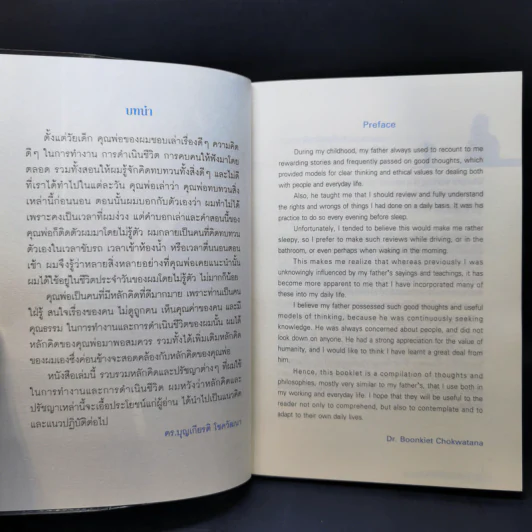 บทนำ
ตั้งแต่วัยเด็ก คุณพ่อของผมชอบเล่าเรื่องดีๆ ความคิด
ดีๆ ในการทำงาน การดำเนินชีวิต การคบคนให้ฟังมาโดย
ตลอด รวมทั้งสอนให้ผมรู้จักคิดทบทวนทั้งสิ่งดี และไม่ดี
ที่เราได้ทำไปในแต่ละวัน คุณพ่อเล่าว่า คุณพ่อทบทวนสิ่ง
เหล่านี้ก่อนนอน ตอนนั้นผมบอกกับตัวเองว่า ผมทำไม่ได้
เพราะคงเป็นเวลาที่ผมง่วง แต่คำบอกเล่าและคำสอนนี้ของ
คุณพ่อก็ติดตัวผมมาโดยไม่รู้ตัว ผมกลายเป็นคนที่คิดทบทวน
ตัวเองในเวลาขับรถ เวลาเข้าห้องน้ำ หรือเวลาตื่นนอนตอน
เช้า ผมจึงรู้ว่าหลายสิ่งหลายอย่างที่คุณพ่อเคยแนะนำนั้น
ผมได้ใช้อยู่ในชีวิตประจำวันของผมโดยไม่รู้ตัว ไม่มากก็น้อย
คุณพ่อเป็นคนที่มีหลักคิดที่ดีมากมาย เพราะท่านเป็นคน
ใฝ่รู้ สนใจเรื่องของคน ไม่ดูถูกคน เห็นคุณค่าของคน และมี
คุณธรรม ในการทำงานและการดำเนินชีวิตของผมนั้น ผมได้
หลักคิดของคุณพ่อมาพอสมควร รวมทั้งได้เพิ่มเติมหลักคิด
ของผมเองซึ่งค่อนข้างจะสอดคล้องกับหลักคิดของคุณพ่อ
หนังสือเล่มนี้ รวบรวมหลักคิดและปรัชญาต่างๆ ที่ผมใช้
ในการทำงานและการดำเนินชีวิต ผมหวังว่าหลักคิดและ
ปรัชญาเหล่านี้จะเอื้อประโยชน์แก่ผู้อ่าน ได้นำไปเป็นแนวคิด
และแนวปฏิบัติต่อไป
ดร.บุญเกียรติ โชควัฒนา
Preface
During my childhood, my father always used to recount to me
rewarding stories and frequently passed on good thoughts, which
provided models for clear thinking and ethical values for dealing both
with people and everyday life.
Also, he taught me that I should review and fully understand
the rights and wrongs of things I had done on a daily basis. It was his
practice to do so every evening before sleep.
Unfortunately, I tended to believe this would make me rather
sleepy, so I prefer to make such reviews while driving, or in the
bathroom, or even perhaps when waking in the morning.
This makes me realize that whereas previously I was
unknowingly influenced by my father's sayings and teachings, it has
become more apparent to me that I have incorporated many of
these into my daily life.
I believe my father possessed such good thoughts and useful
models of thinking, because he was continuously seeking
knowledge. He was always concerned about people, and did not
look down on anyone. He had a strong appreciation for the value of
humanity, and I would like to think I have learnt a great deal from
him.
Hence, this booklet is a compilation of thoughts and
philosophies, mostly very similar to my father's, that I use both in
my working and everyday life. I hope that they will be useful to the
reader not only to comprehend, but also to contemplate and to
adapt to their own daily lives.
Dr. Boonkiet Chokwatana